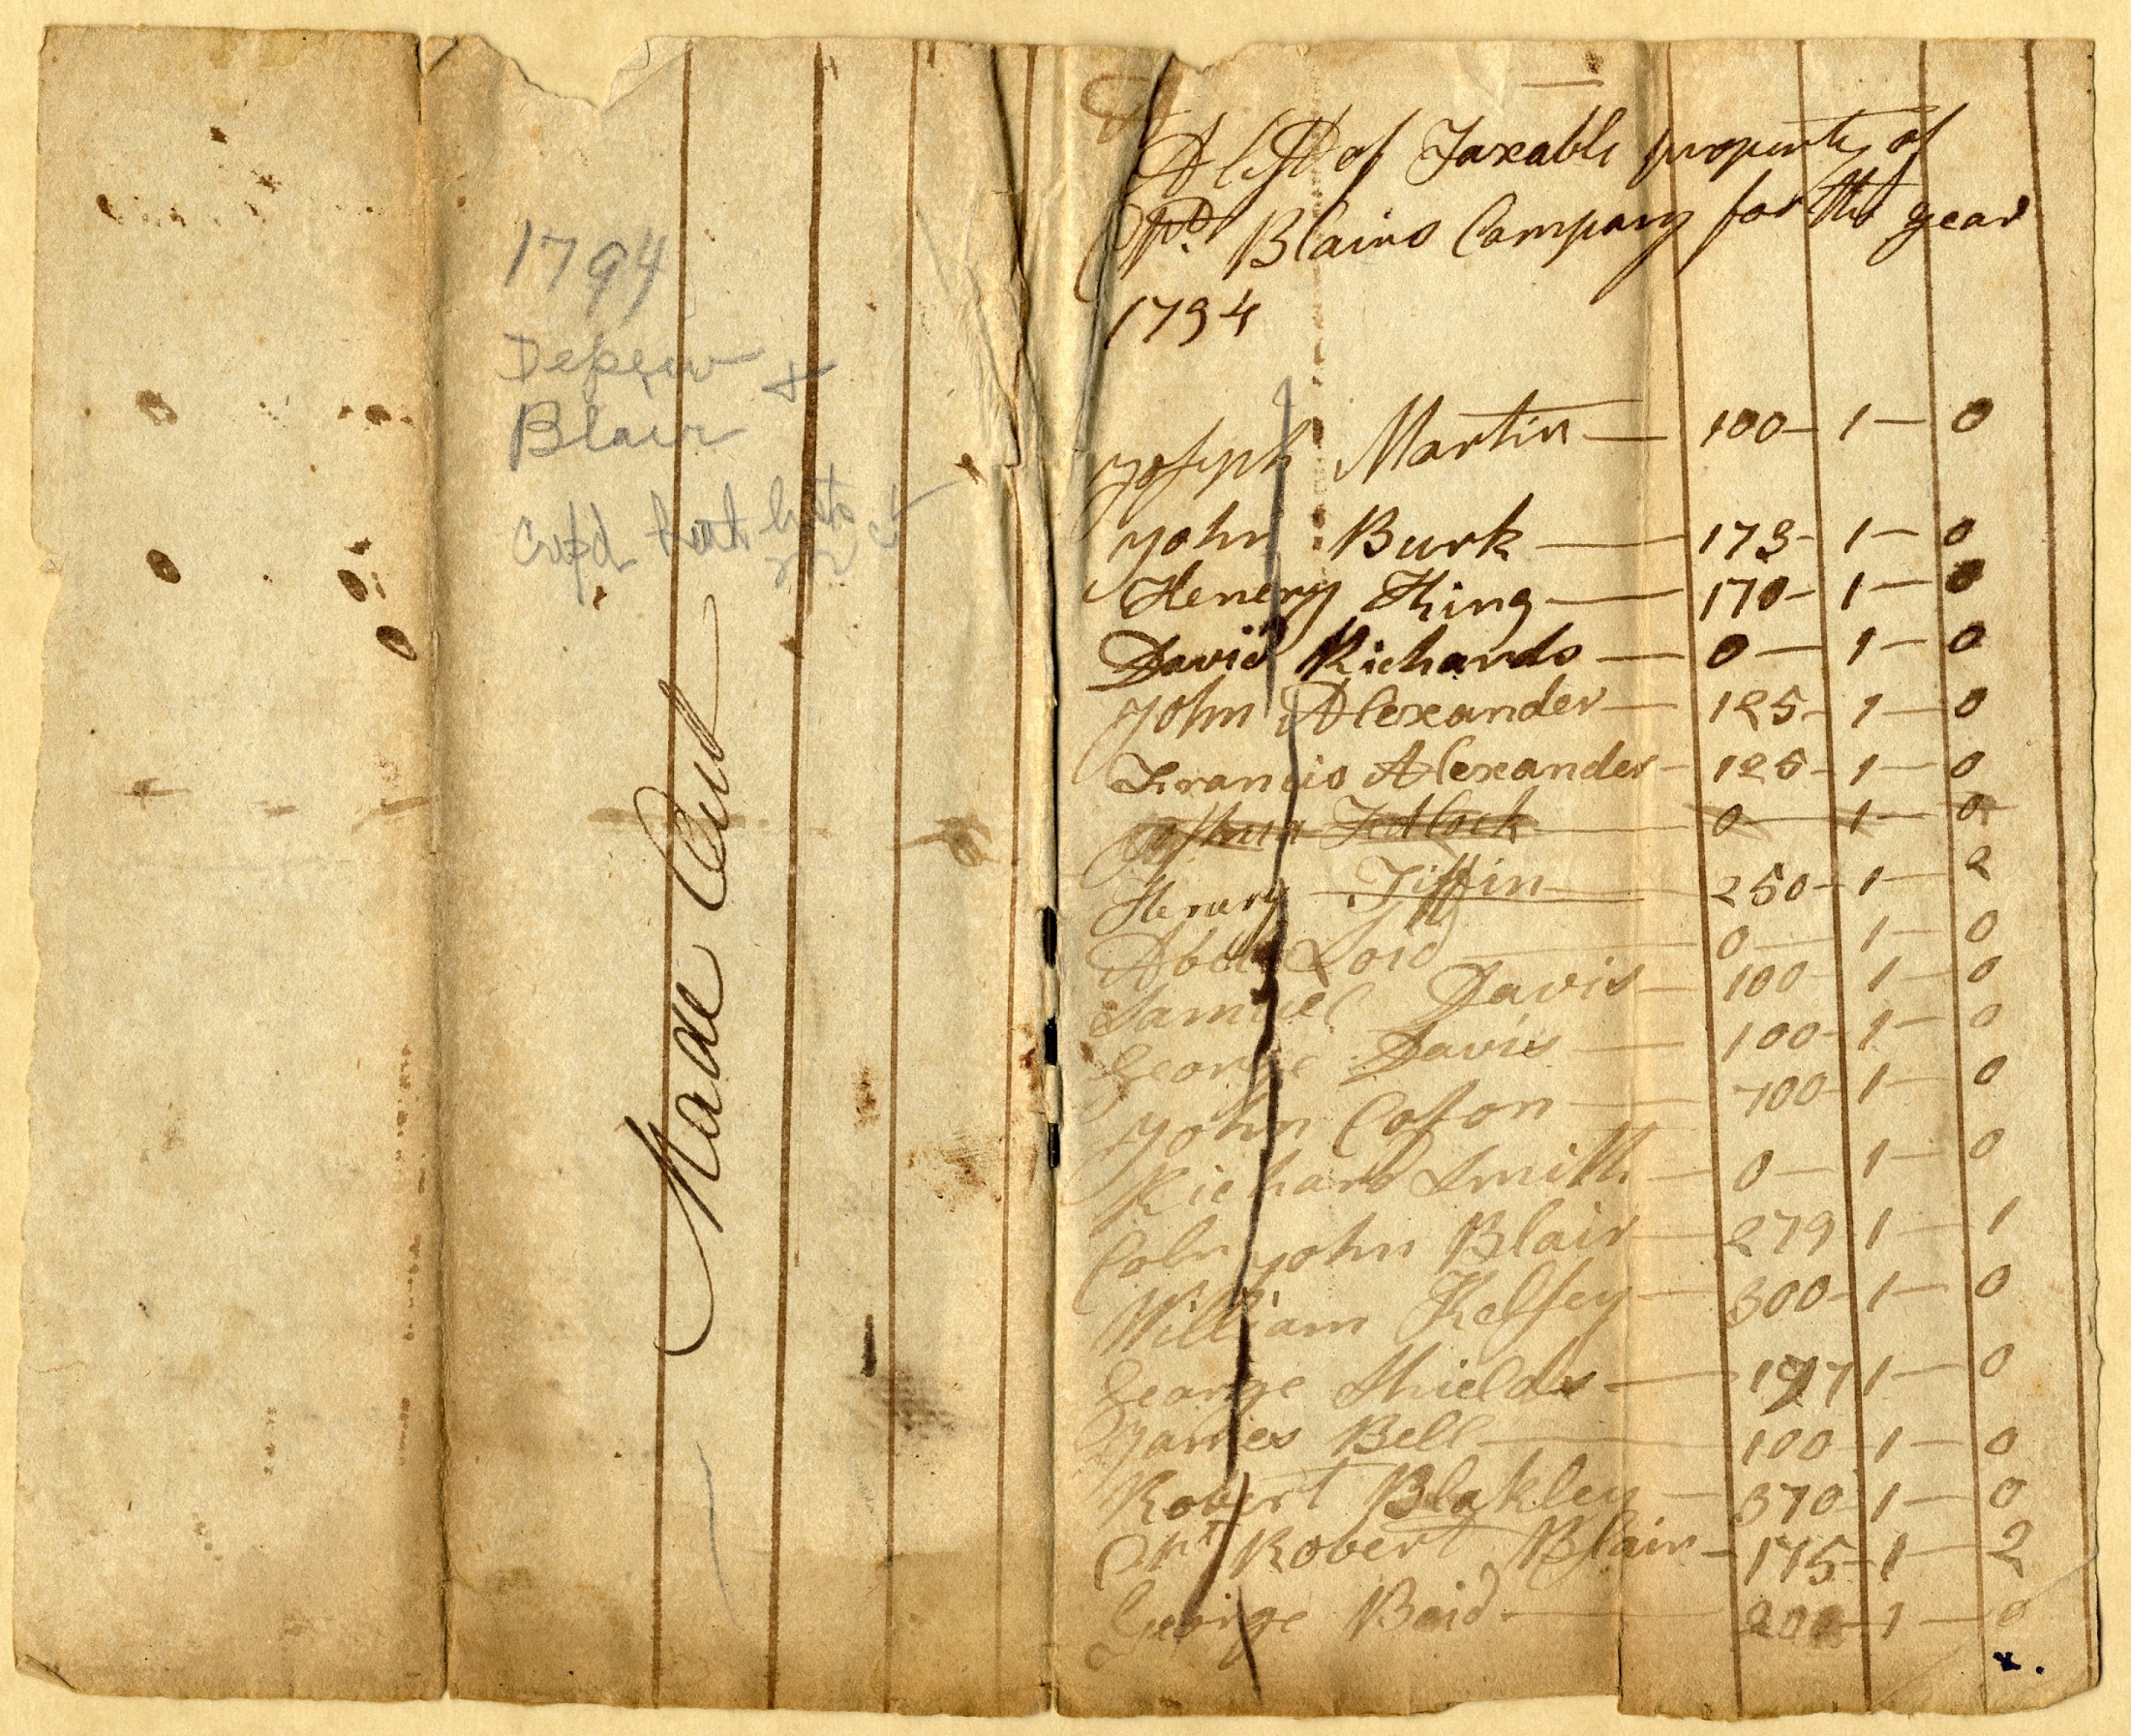 1794
Depew &
Blair
Cop'd both lists
Made Out
A list of Taxable property of
Cpt. Blairs Company for the year
1794
Joseph Martin — 100 — 1 — 0
John Burk — 173 — 1 — 0
Henery King — 170 — 1 — 0
David Richards — 0 — 1 — 0
John Alexander — 125 — 1 — 0
Francis Alexander — 125 — 1 — 0
Joshua Tadlock — 0 — 1 — 0
Henery Tiffin — 250 — 1 — 2
Abel Loid — 0 — 1 — 0
Samuel Davis — 100 — 1 — 0
George Davis — 100 — 1 — 0
John Coton — 700 — 1 — 0
Richard Smith — 0 — 1 — 0
Coln John Blair — 279 1 — 1
William Kelsey — 300 — 1 — 0
George Shields — 197 1 — 0
James Bell — 100 — 1 — 0
Robert Blakley — 370 1 — 0
Cpt Robert Blair — 175 — 1 — 2
George Baid — 200 — 1 — 0